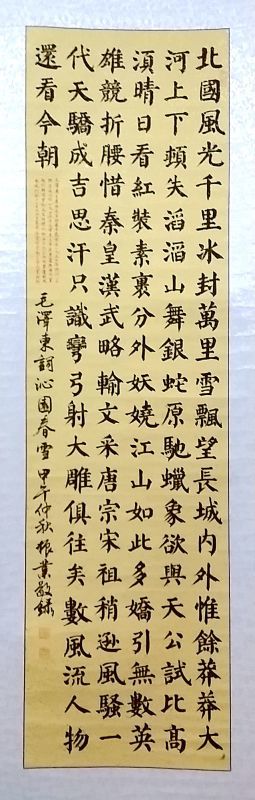 北國風光千里冰封萬里雪飄望長城內外惟餘莽莽大
河上下頓失滔滔山舞銀蛇原馳蠟象欲與天公試比高
須晴日看紅裝素裹分外妖嬈江山如此多嬌引無數英
雄競折腰惜秦皇漢武略輸文采唐宗宋祖稍遜風騷一
代天驕成吉思汗只識彎弓射大雕俱往矣數風流人物
還看今朝
毛澤東詞沁園春雪 甲午仲秋 振業敬錄